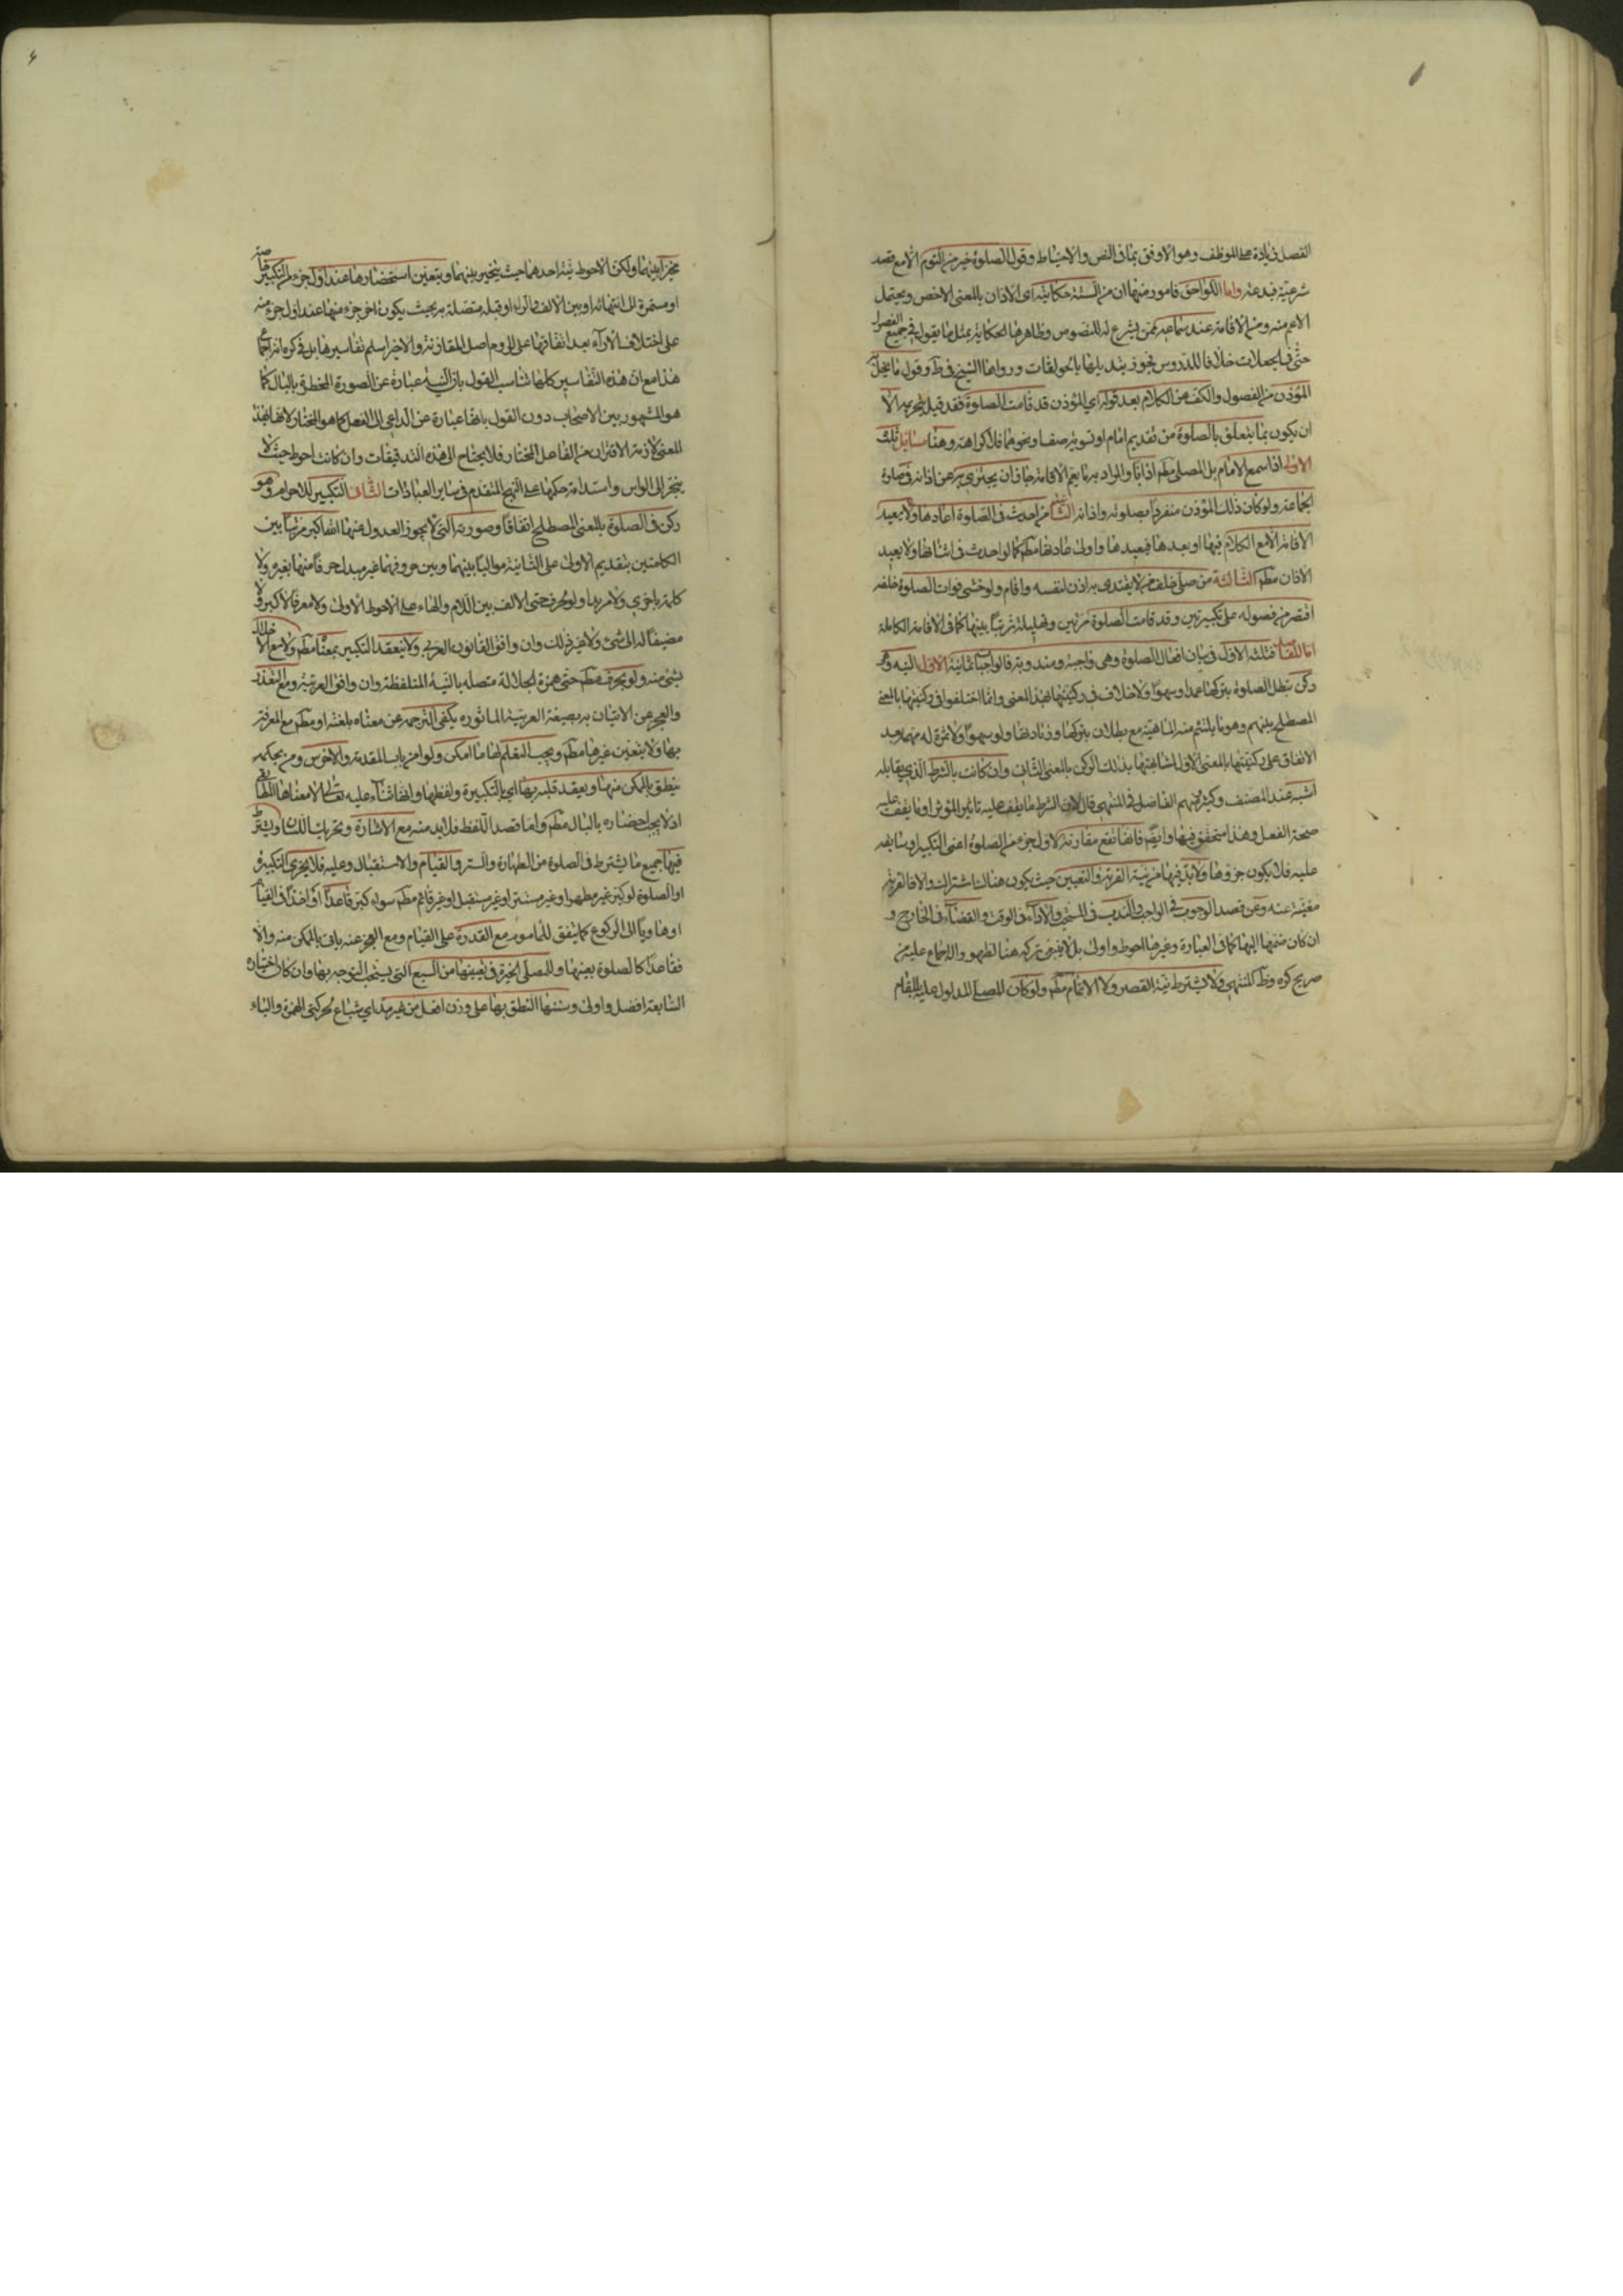 الفصل زيادة على الموظف وهو الاوفق بما فى النص والاحتياط وقول الصلوة خير من النوم الا مع قصد
شرعيته فبدعة واما اللواحق فامور منها ان من السنة حكايته اى الاذان بالمعنى الاخص ويحتمل
الاعم منه ومن الاقامة عند سماعه ممن يشرع له للنصوص وظاهرها الحكاية بمثل ما يقول فى جميع الفصول
حتى فى الحيعلات خلافا للدروس فجوز تبديلها بالحولقات ورواها الشيخ فى ط وقول ما يخل به
المؤذن من الفصول والكف عن الكلام بعد قوله اي المؤذن قد قامت الصلوة فقد قيل بتحريمه الا
ان يكون بما يتعلق بالصلوة من تقديم امام او تسوية صف او نحوهما فلا كراهة وهنا مسائل ثلث
الاولى اذا سمع الامام بل المصلى مطم اذانا والمراد به ما يعم الاقامة جاز ان يجتزي به عن اذانه فى صلوة
الجماعة ولو كان ذلك المؤذن منفردا بصلوته واذانه الثانية من احدث فى الصلوة اعادها ولا يعيد
الاقامة الا مع الكلام فيها او بعدها فيعيدها واولى كما لو احدث فى اثنائها ولا يعيد
الاذان مطم الثالثة من صلى خلف من لا يقتدى به اذن لنفسه واقام ولو خشى فوات الصلوة خلفه
اقتصر من فصوله على تكبيرتين وقد قامت الصلوة مرتين وتهليلة ترتيبا بينها كما فى الاقامة الكاملة
اما المقاصد فثلثة الاول فى بيان افعال الصلوة وهى واجبة ومندوبة فالواجبات ثمانية الاول النية وهى
ركن تبطل الصلوة بتركها عمدا وسهوا ولا خلاف فى ركنيتها بهذا المعنى وانما اختلفوا فى ركنيتها بالمعنى
المصطلح بينهم وهو ما يلتئم منه الماهية مع بطلان بتركها وزيادتها ولو سهوا ولا ثمرة له مهمة بعد
الاتفاق على ركنيتها بالمعنى الاول لمشابهتها بذلك الركن بالمعنى الثانى وان كانت بالشرط الذي يقابله
اشبه عند المصنف وكثير منهم الفاضل فى المنتهى قال لان الشرط ما يقف عليه تاثير المؤثر او ما يقف عليه
صحة الفعل وهذا متحقق فيها وايضا فانها تقع مقارنة لاول جزء من الصلوة اعنى التكبير او سابقه
عليه فلا يكون جزوها ولا بد فيها من نية القربة والتعيين حيث يكون هناك اشتراك والا فالقربة
مغنية عنه وعن قصد الوجوب فى الواجب والندب فى المستحب والاداء فى الوقت والقضاء فى الخارج و
ان كان ضمها اليها كما فى العبارة وغيرها احوط واولى بل لا ينبغى تركه هنا لظهور الاجماع عليه من
صريح كره وظ كالمنتهى ولا يشترط نية القصر ولا الاتمام مطم ولو كان المصلى المدلول عليه بالمقام
مخيرا بينهما ولكن الاحوط نية احدهما حيث يتخير بينهما ويتعين استحضارها عند اول جزء من التكبير
او مستمرة الى انتهائه او بين الالف والراء او قبله متصلة به بحيث يكون اخر جزء منها عند اول جزء منه
على اختلاف الآراء بعد اتفاقها على لزوم اصل المقارنة والاخير اسلم تفاسيرها بل فى كره انه اجماع
هذا مع ان هذه التفاسير كلها تناسب القول بان النية عبارة عن الصورة المخطرة بالبال كما
هو المشهور بين الاصحاب دون القول بانها عبارة عن الداعى الى الفعل كما هو المختار لانها بهذا
المعنى لازمة الاقتران من الفاعل المختار فلا يحتاج الى هذه التدقيقات وان كانت احوط حيث لا
ينجر الى الوسواس واستدامة حكمها على النهج المتقدم فى ساير العبادات الثانى التكبير للاحرام وهو
ركن فى الصلوة بالمعنى المصطلح اتفاقا وصورته التى لا يجوز العدول عنها الله اكبر مرتبا بين
الكلمتين بتقديم الاولى على الثانية مواليا بينهما وبين حروفهما غير مبدل حرفا منها بغيره ولا
كلمة باخرى ولا مزيدا ولو بحرف حتى الالف بين اللام والهاء على الاحوط الاولى ولا معرفا لاكبر ولا
مضيفا له الى شئ ولا غير ذلك وان وافق القانون العربى ولا ينعقد التكبير بمعناه مطم ولا مع الاخلال
بشئ منه ولو بحرف مطم حتى همزة الجلالة متصله بالنية المتلفظة وان وافق العربية ومع التعذر
والعجز عن الاتيان به بصيغة العربية الماثوره يكفى الترجمه عن معناه بلغته او مطم مع المعرفة
بها ولا يتعين غيرها مطم ويجب التعلم لها ما امكن ولو من باب المقدمة والاخرس ومن بحكمه
ينطق بالممكن منها ويعقد قلبه بها اي بالتكبيرة ولفظها وانها ثناء عليه تعالى لا معناها المطابقى
اذ لا يجب احضاره بالبال مطم واما قصد اللفظ فلا بد منه مع الاشارة وتحريك اللسان ويشترط
فيها جميع ما يشترط فى الصلوة من الطهارة والستر والقيام والاستقبال وعليه فلا يجزي التكبير
او الصلوة لو كبر غير مطهر او غير مستتر او غير مستقبل او غير قائم مطم سواء كبر قاعدا او اخذا فى القيام
او هاويا الى الركوع كما يتفق للماموم مع القدرة على القيام ومع العجز عنه ياتى بالممكن منه والا
فقاعدا كالصلوة بعينها وللمصلى الخيرة فى تعيينها من السبع التى يستحب التوجه بها وان كان اختياره
السابعة افضل واولى وسننها النطق بها على وزن افعل من غير مد اي شباع حركتى الهمزة والباء